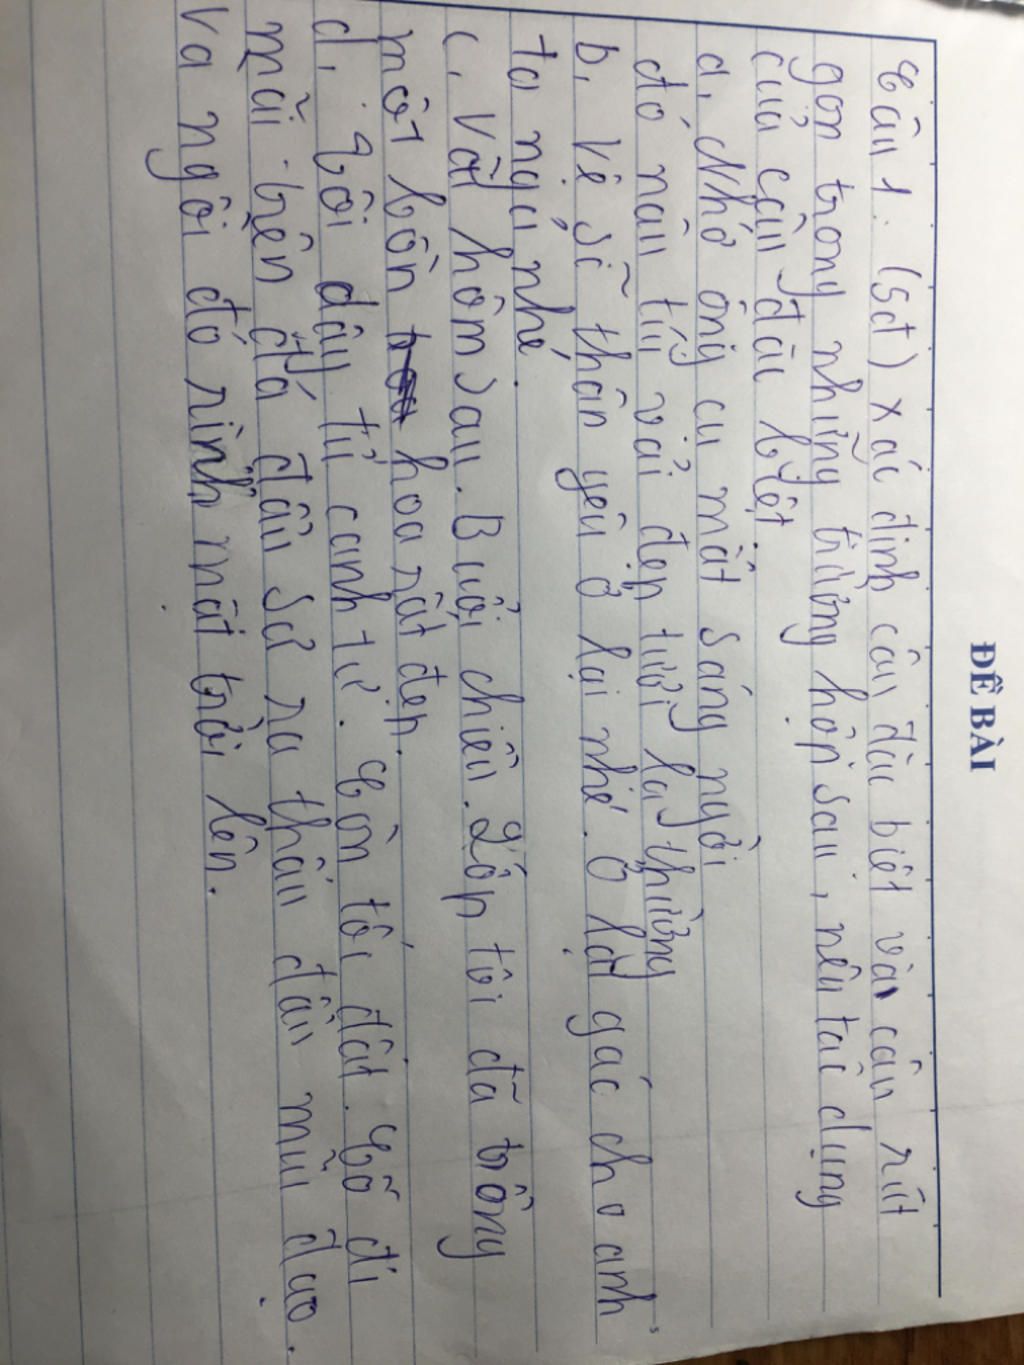 ĐỀ BÀI
Câu 1: (5đ) Xác định câu đặc biệt và câu rút
gọn trong những trường hợp sau, nêu tác dụng
của câu đặc biệt.
a, Nhớ ông cụ mắt sáng ngời
áo nâu túi vải đẹp tươi lạ thường
b, Vệ sĩ thân yêu ở lại nhé. Ở lại gác cho anh
ta ngủ nhé.
c, Vài hôm sau. Buổi chiều. Lớp tôi đã trồng
một bồn hoa rất đẹp.
d, Tôi dậy từ canh tư. Còn tối đất. Cố đi
mãi trên đá đầu sư ra thấu đầu mũi đảo.
Và ngồi đó rình mặt trời lên.